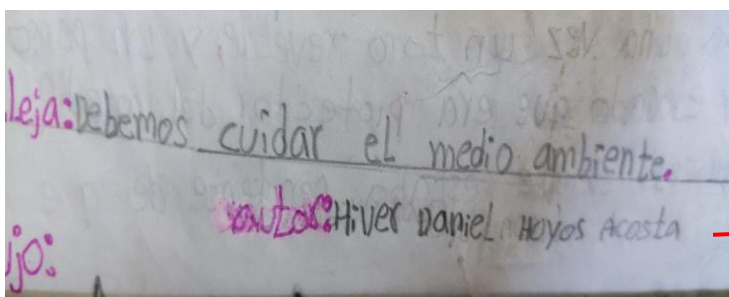 leja: Debemos cuidar el medio ambiente.
autor: Hiver Daniel Hoyos Acosta
ijo: